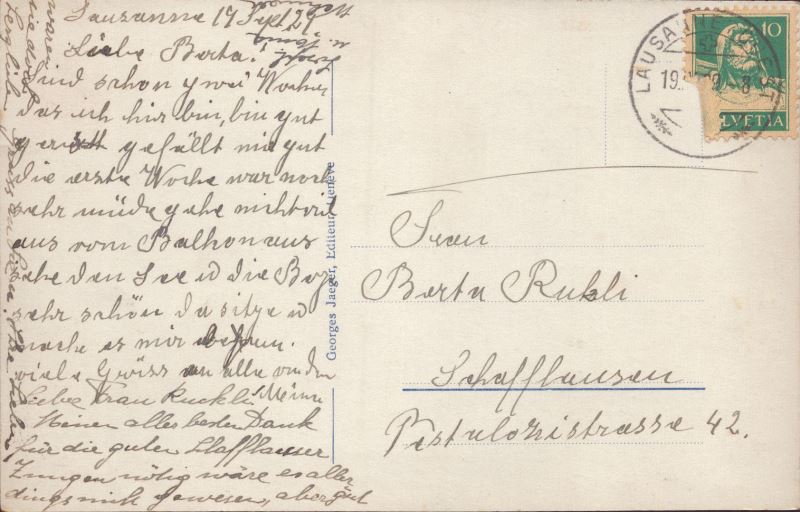 Lausanne 17 Sept 29
Liebe Berta!
Sind schon zwei Wochen
das ich hir bin, bin gut
gereist gefällt mir gut
die erste Woche war noch
sehr müde gehe nicht viel
aus vom Balkon aus
sehe den See u die Berge
sehr schön da sitze u
mache es mir bequem.
viele Grüss an alle von der
Liebe Frau Ruckli. Meinen
Meinen alles besten Dank
für die guten Schaffhauser
Zungen nötig wäre es aller
dings nicht gewesen, aber gut
waren
sie doch
Herzlichen Gruss an
Georges Jaeger, Editeur, Genève
LAUSANNE
19
8
10
HELVETIA
Frau
Berta Rukli
Schaffhausen
Pestalozistrasse 42.